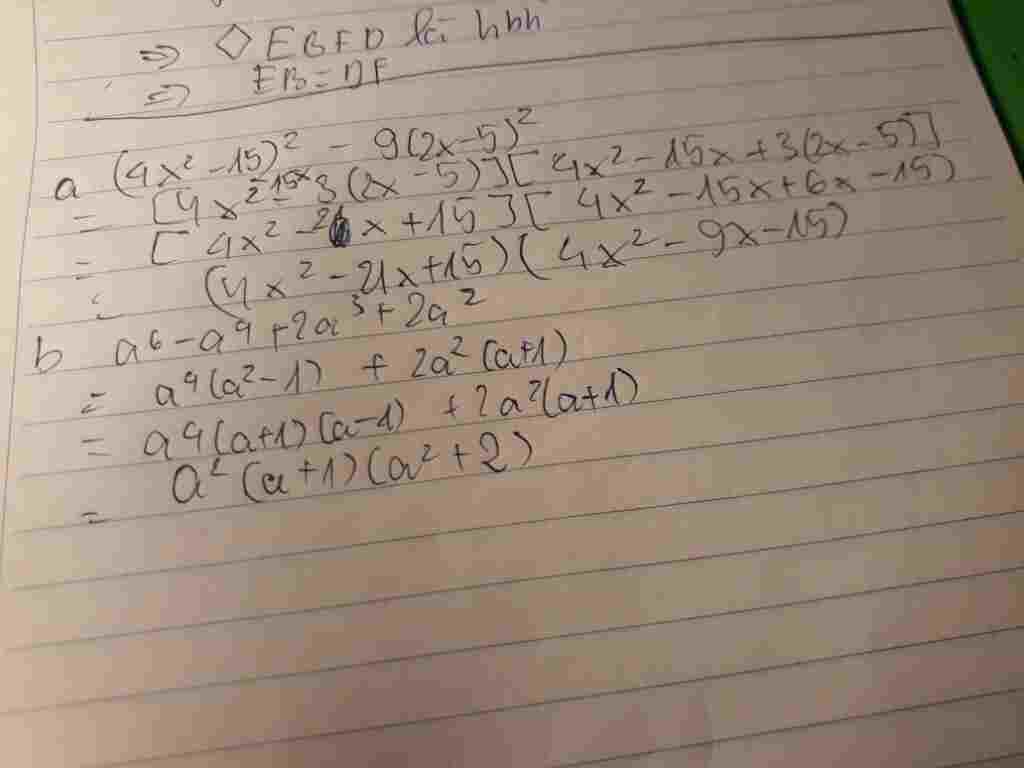 ⇒ ◇ EBFD là hbh
⇒ EB = DF
a (4x² - 15)² - 9(2x - 5)²
= [4x² - 15x - 3(2x - 5)][4x² - 15x + 3(2x - 5)]
= [4x² - 21x + 15][4x² - 15x + 6x - 15)
= (4x² - 21x + 15)(4x² - 9x - 15)
b a⁶ - a⁴ + 2a³ + 2a²
= a⁴(a² - 1) + 2a²(a + 1)
= a⁴(a + 1)(a - 1) + 2a²(a + 1)
= a²(a + 1)(a² + 2)